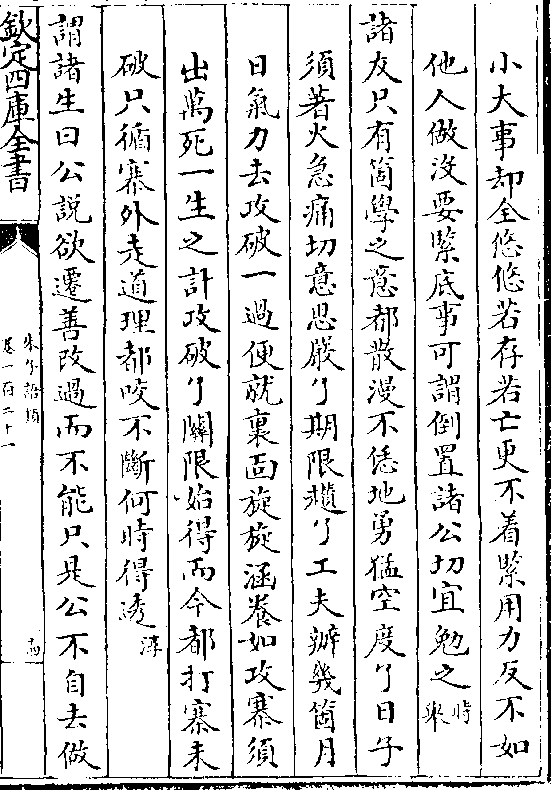 小大事却全悠悠若存若亡更不着緊用力反不如
他人做沒要緊底事可謂倒置諸公切宜勉之時舉
諸友只有箇學之意都散漫不恁地勇猛空度了日子
須著火急痛切意思嚴了期限趲了工夫辦幾箇月
日氣力去攻破一過便就裏面旋旋涵養如攻寨須
出萬死一生之計攻破了關限始得而今都打寨未
破只循寨外走道理都咬不斷何時得透淳
謂諸生曰公説欲遷善改過而不能只是公不自去做
欽定四庫全書
朱子語類
卷一百二十一